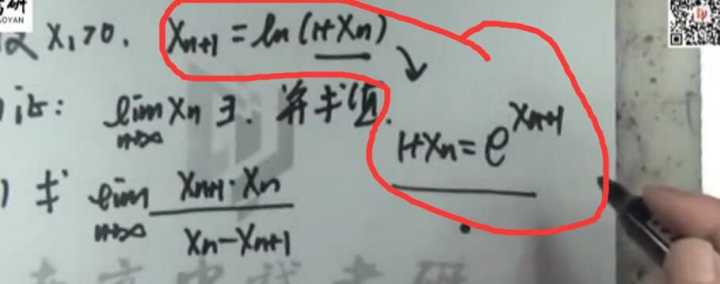 研
AOYAN
设 X₁>0, Xₙ₊₁ = ln(1+Xₙ)
证: lim n→∞ Xₙ ∃. 并求值.
1+Xₙ = e^(Xₙ₊₁)
) 求 lim n→∞ (Xₙ₊₁·Xₙ)/(Xₙ-Xₙ₊₁)